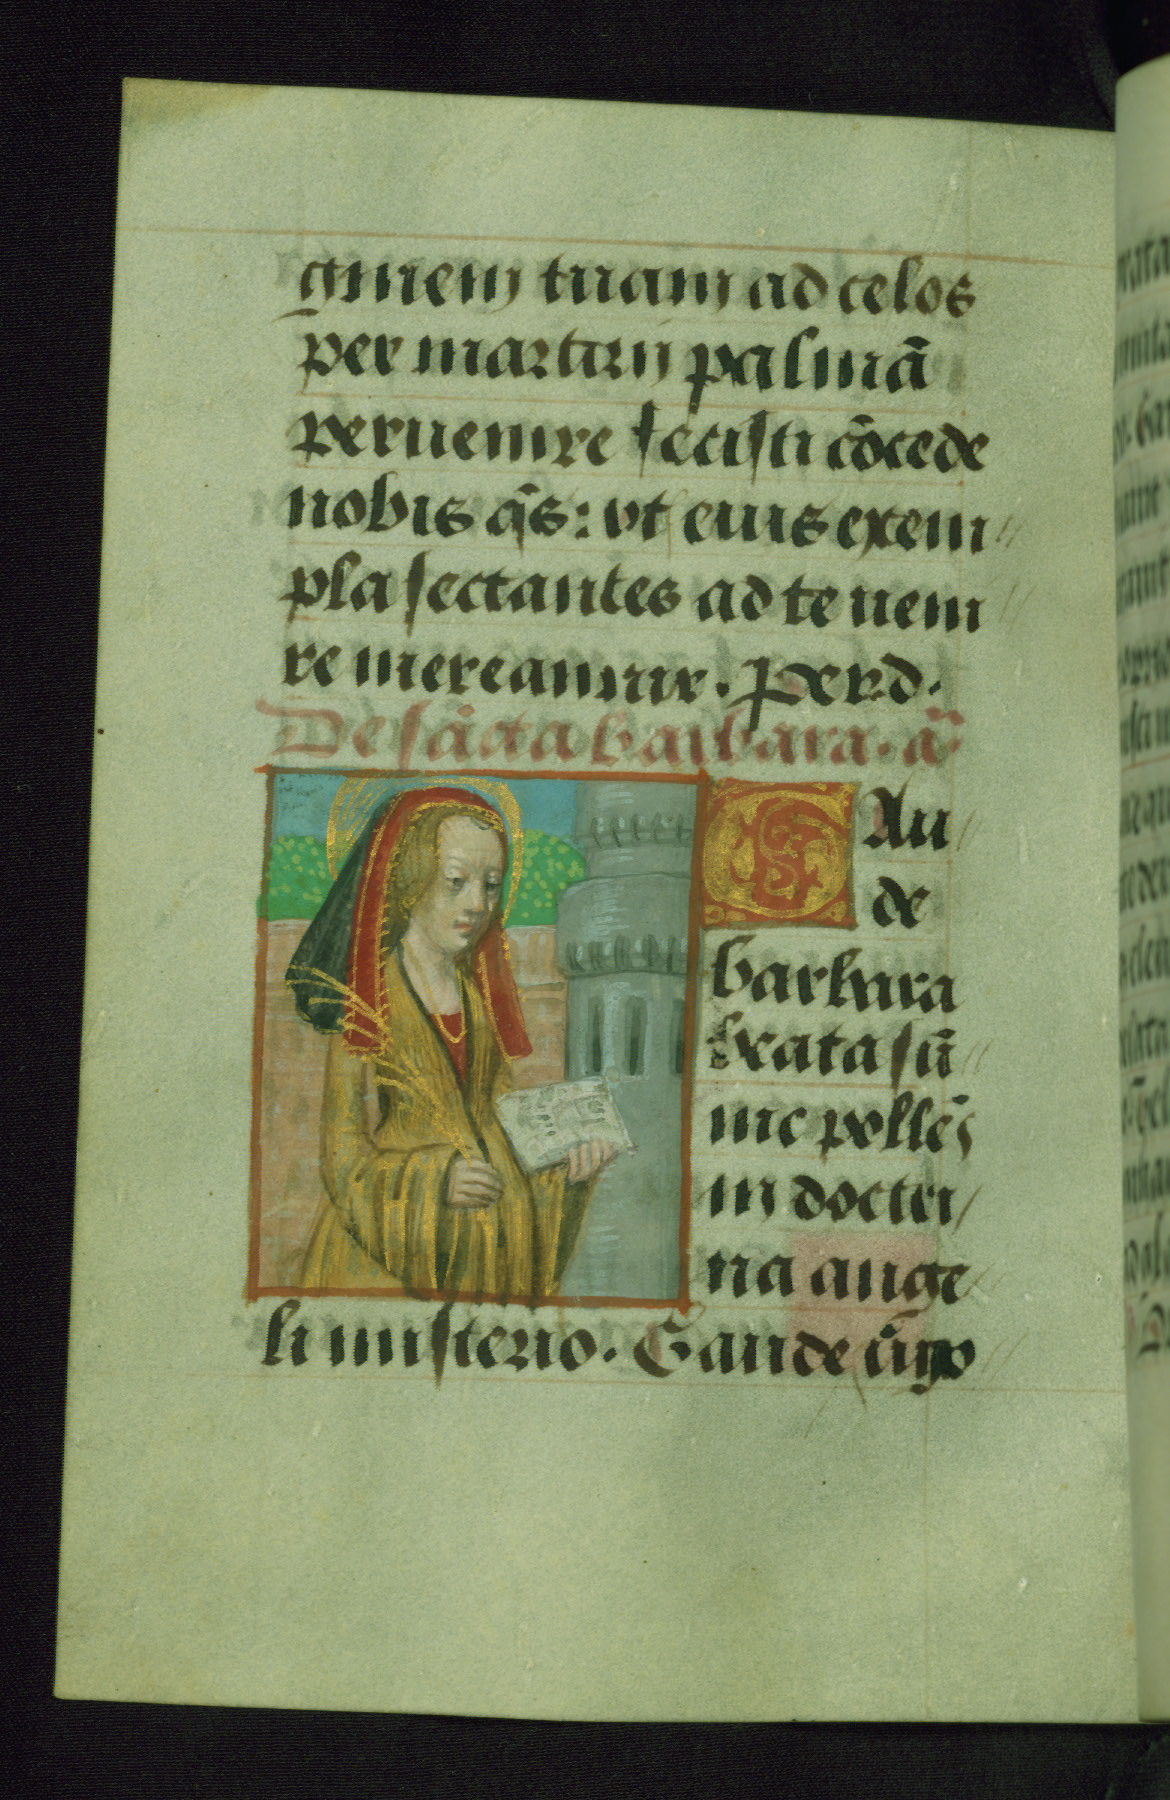 ginem tuam ad celos
per martirij palmā
peruenire fecisti cōcede
nobis q̄s: vt eius exem
pla sectantes ad te ueni
re mereamur. Per d.
De sācta barbara. a̅
GAu
de
barbara
beata sū
me pollēs
in doctri
na ange
li misterio. Gaude u̇irgo